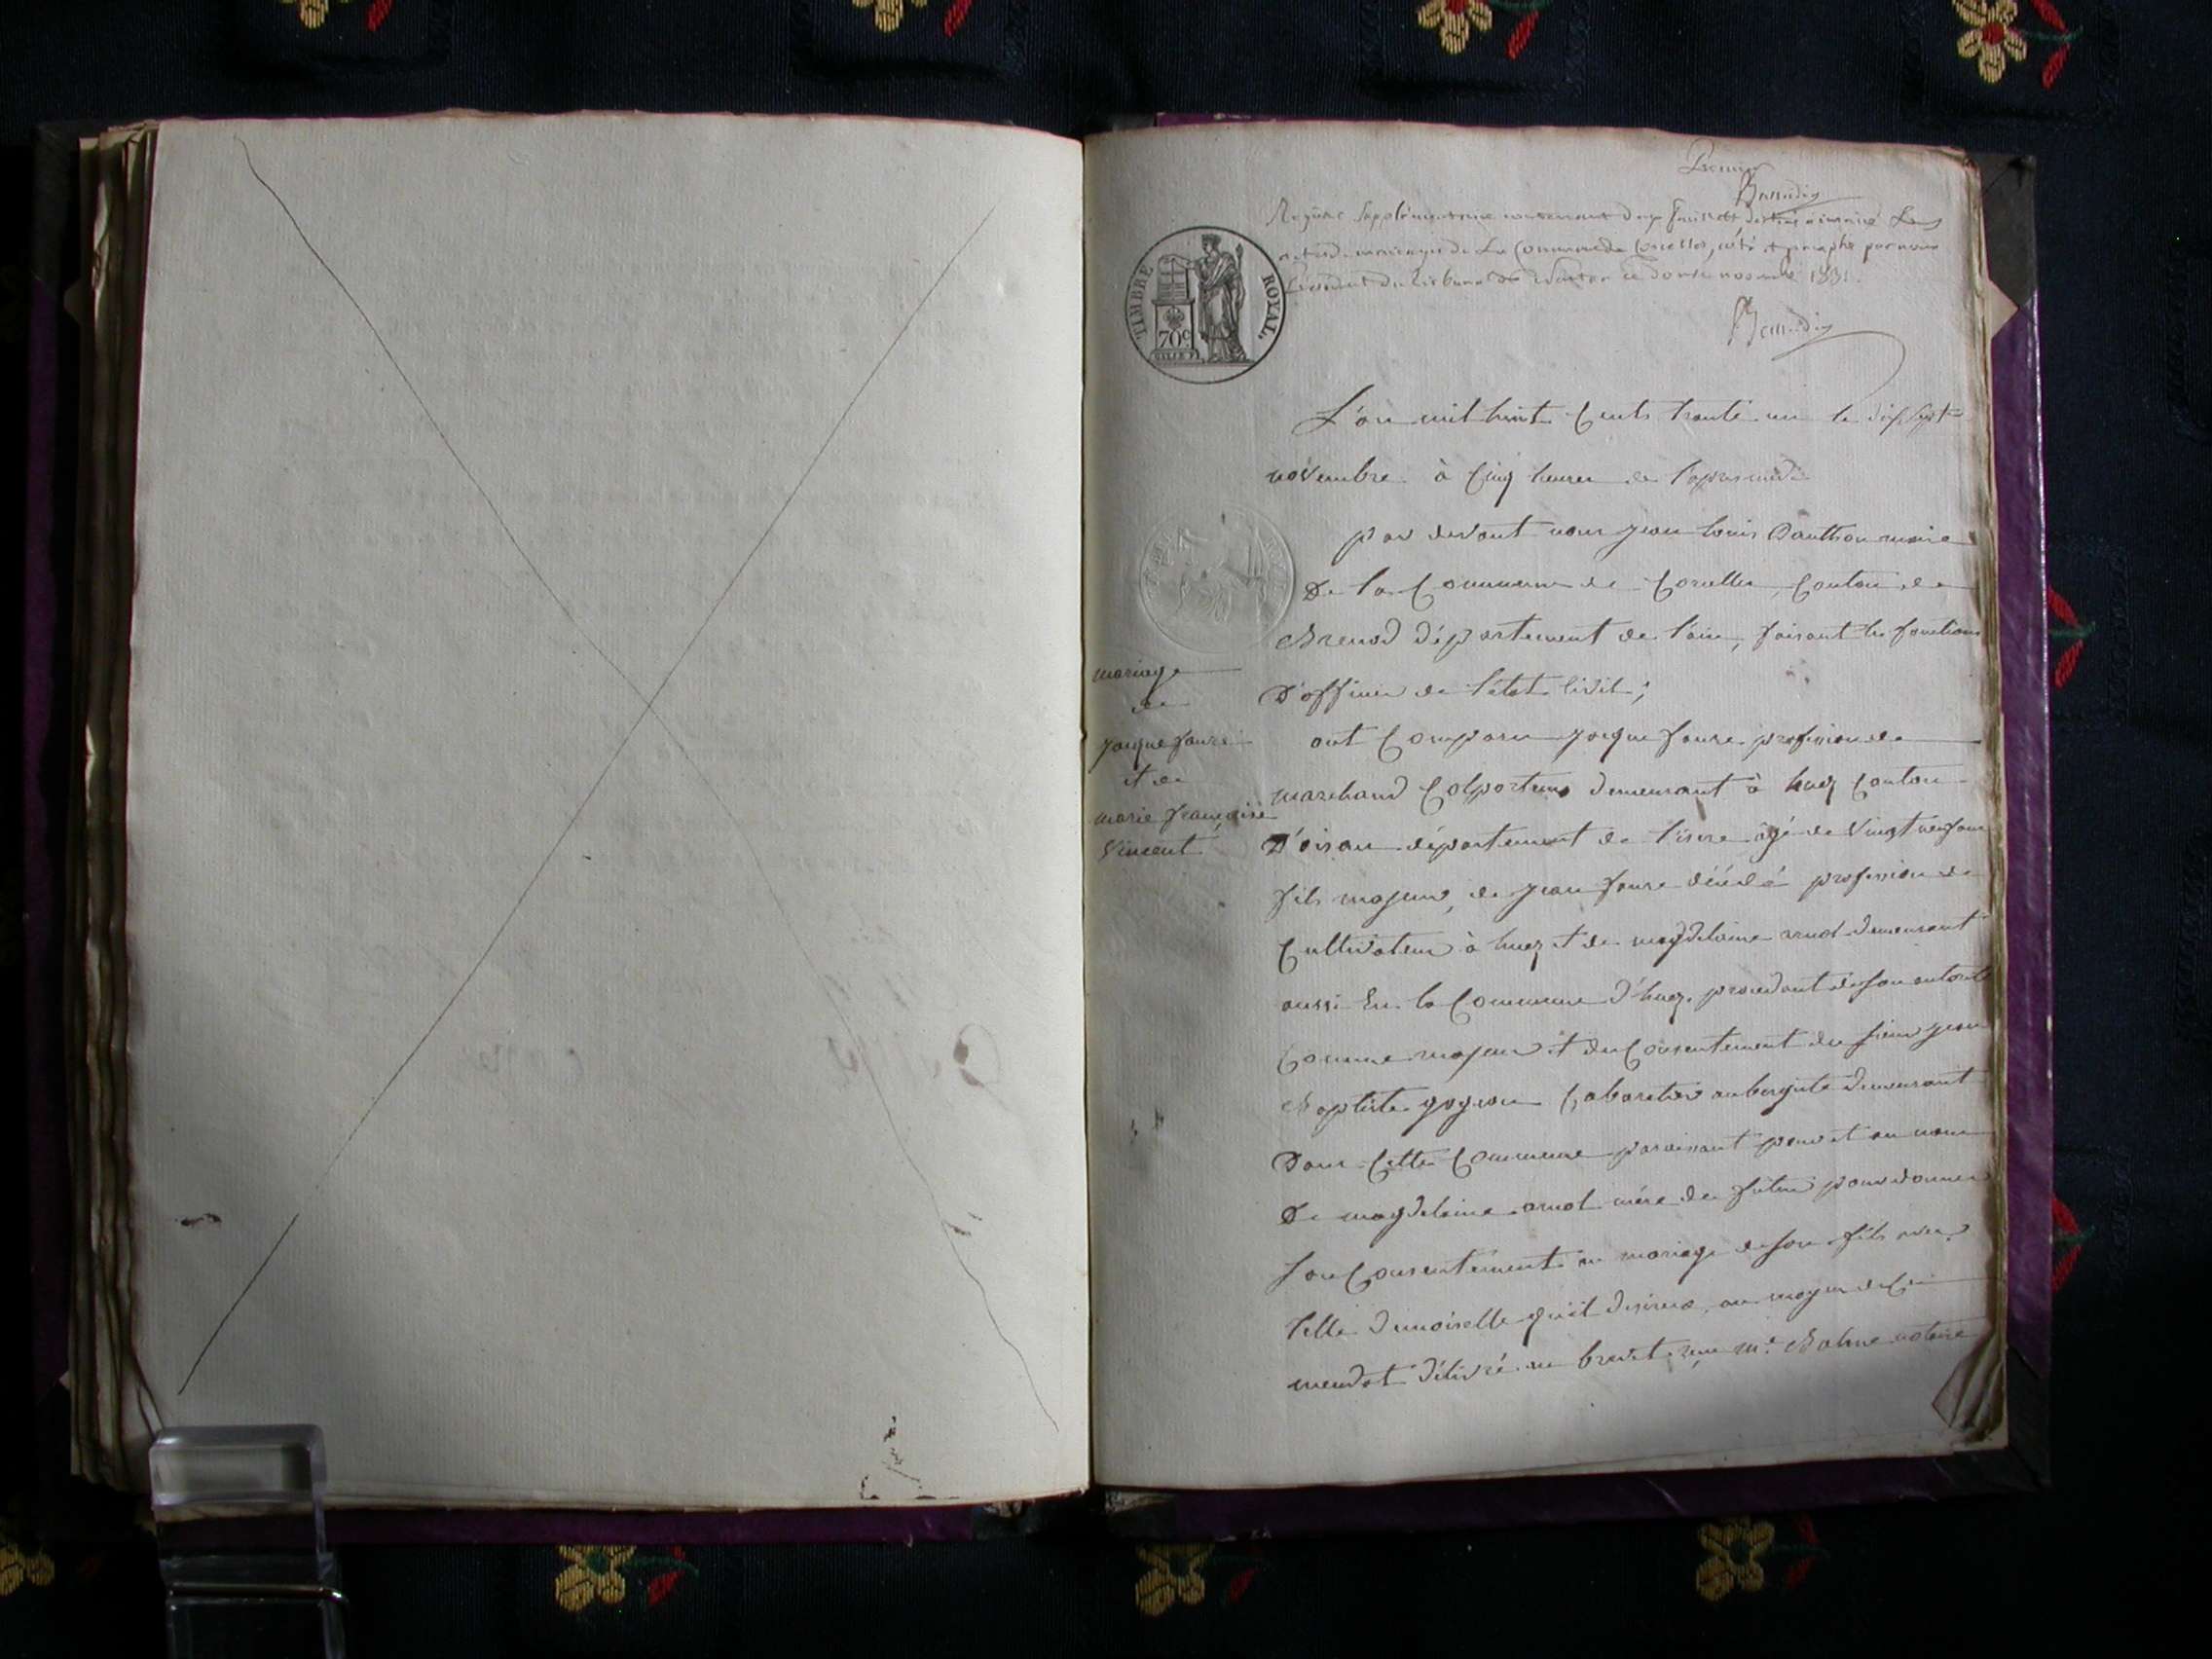 Premier
Registre supplémentaire contenant deux feuillets destiné à inscrire les
actes de mariages de la Commune de Corcelles, coté et paraphé par nous
président du tribunal de Nantua ce douze novembre 1831.
TIMBRE ROYAL
70c
L'an mil huit Cents trente un le dix sept
novembre à Cinq heures de l'apres midi
par devant nous jean louis Dauthon maire
De la Commune de Corcelles, Canton de
Brenod département de l'ain, faisant les fonctions
D'officier de l'état Civil;
mariage
de
jacque faure
et de
marie françoise
Vincent
ont Comparu jacque faure profession de
marchand Colporteur demeurant à huez Canton
D'oisan département de l'isere âgé de Vingt neuf ans
fils majeur, de jean faure décédé profession de
Cultivateur à huez et de magdelaine arnol demeurant
aussi En la Commune d'huez, procedant de son autorité
Comme majeur et du Consentement du sieur jean
Baptiste gogeon Cabaretier aubergiste demeurant
Dans Cette Commune paroissant pour et au nom
De magdelaine arnol mère du futur pour donner
son Consentement au mariage de son fils avec
telle Demoiselle qu'il desirera, au moyen de Ce
mendat délivré en brevet reçu me. Balme notaire